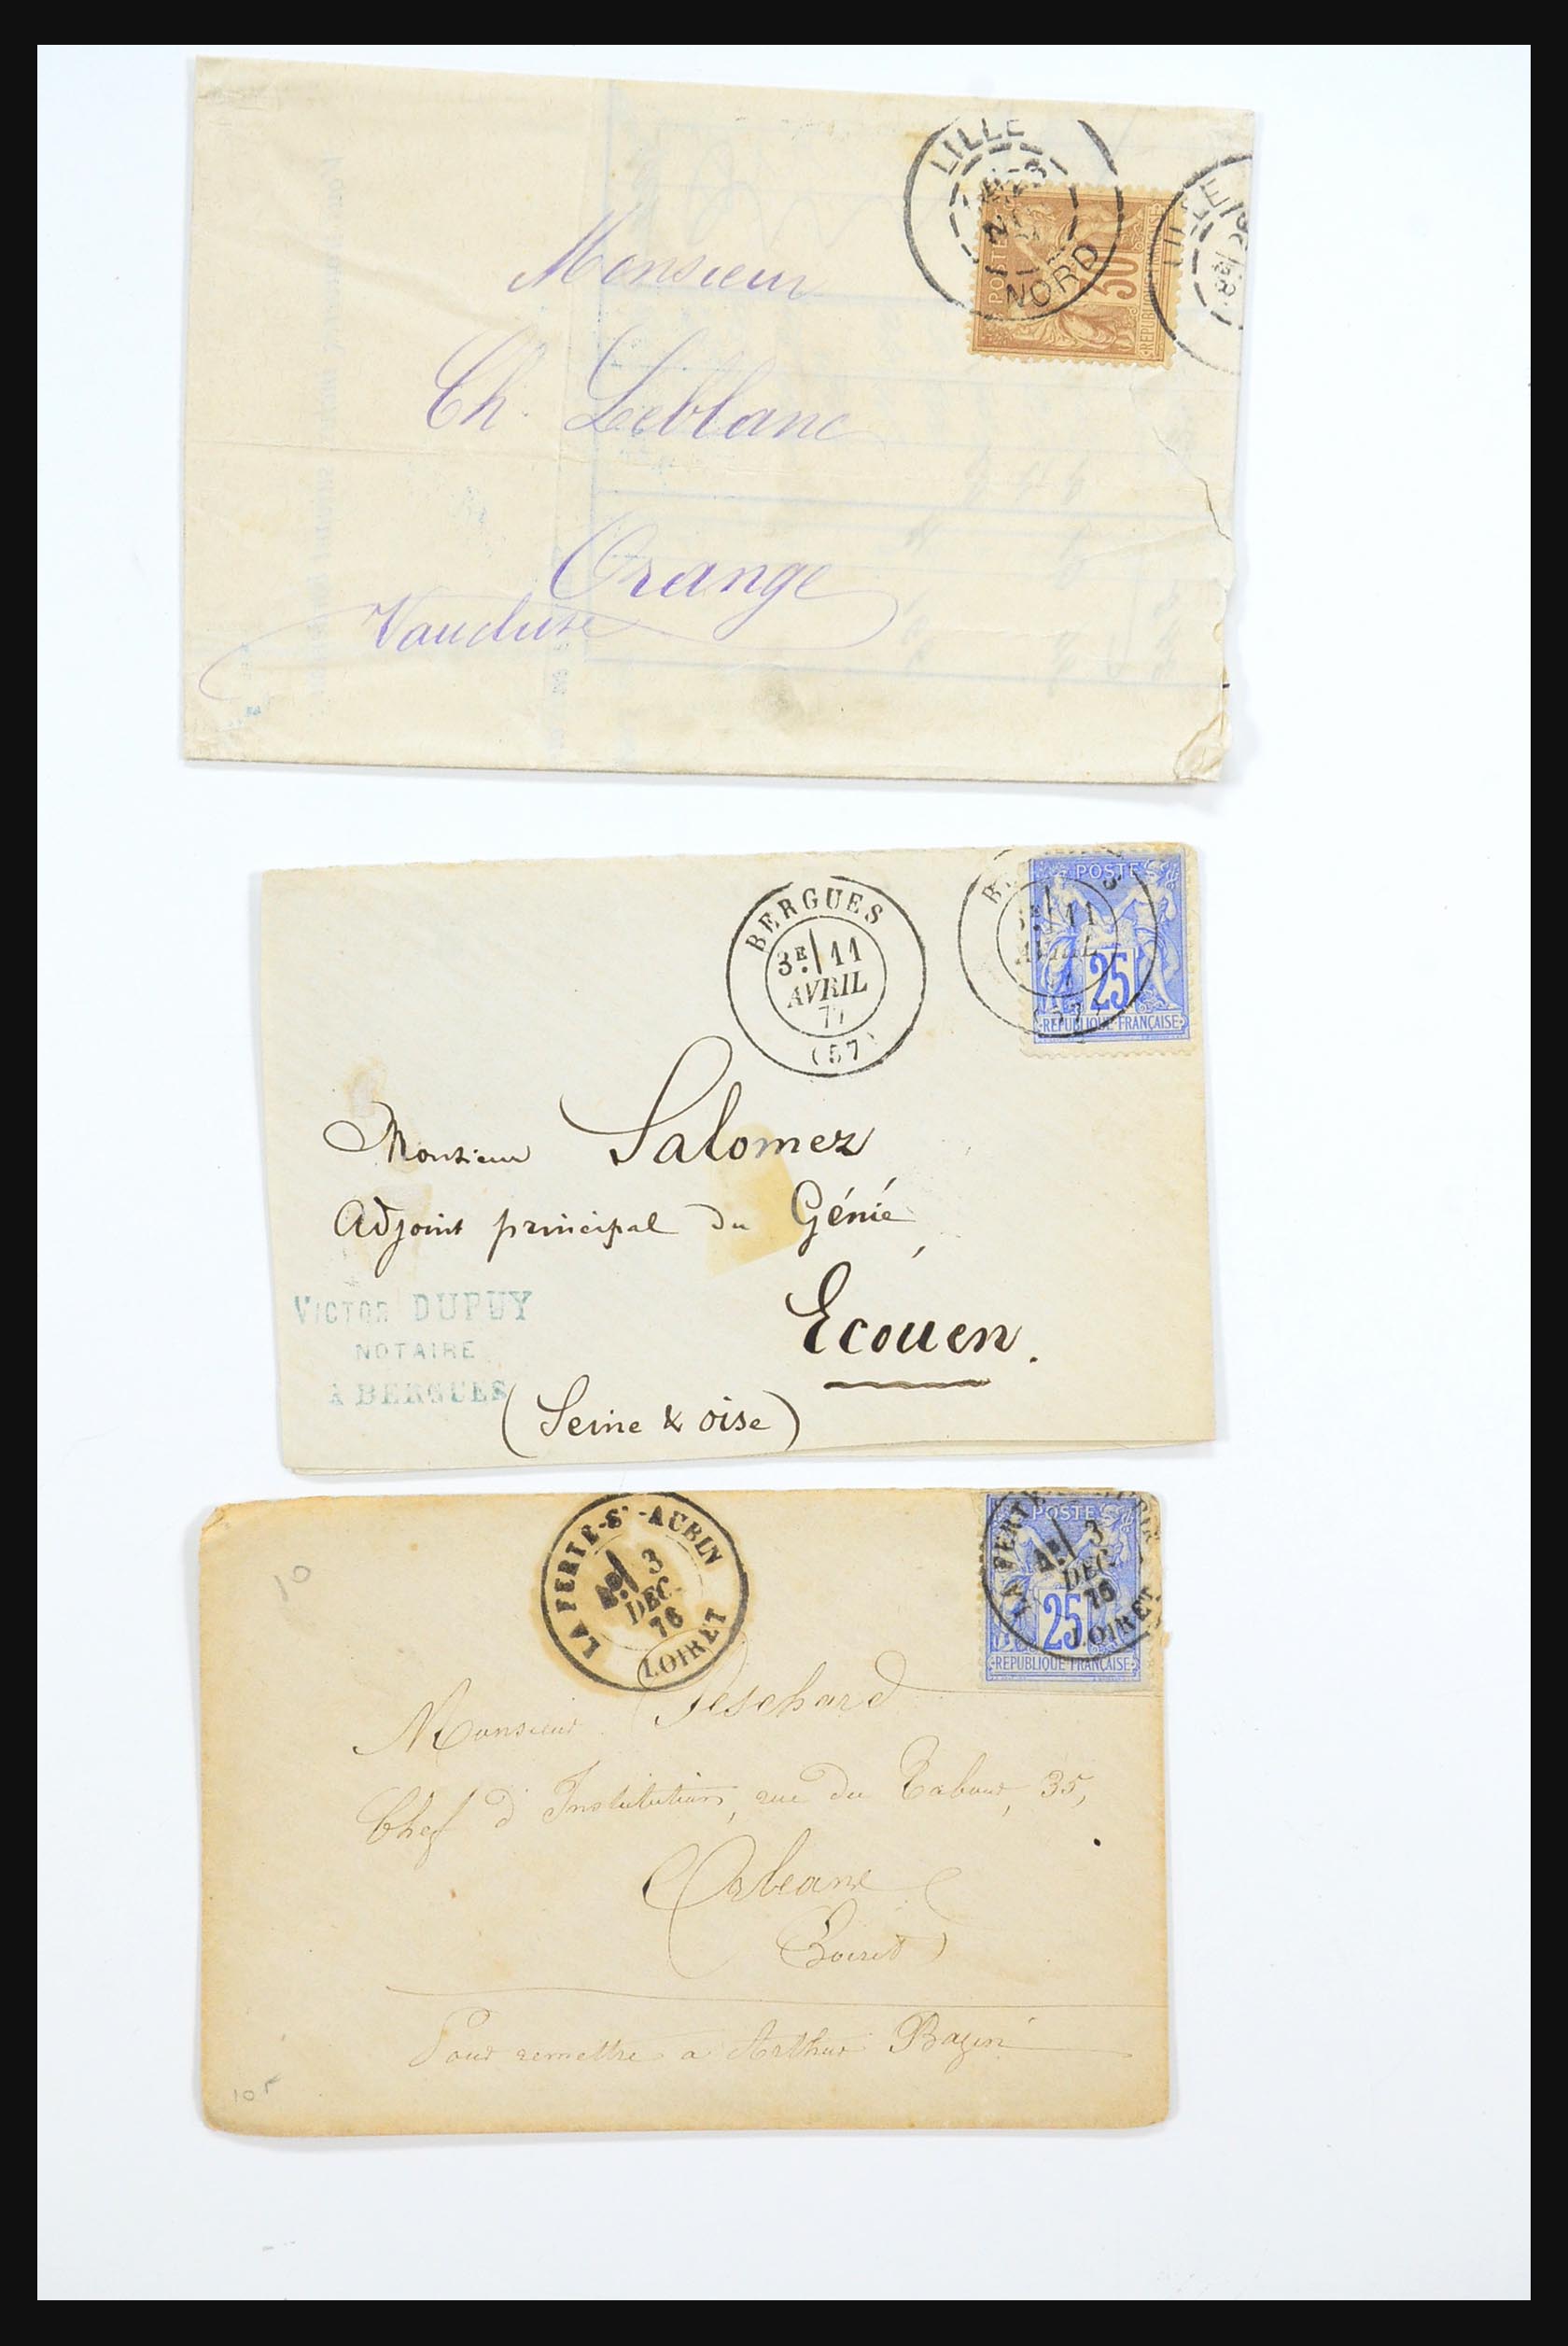 LILLE
NORD
POSTE
30
LILLE
Monsieur
Ch. Leblanc
Orange
Vaucluse
BERGUES
3E 11
AVRIL
77
(57)
POSTE
25
REPUBLIQUE FRANÇAISE
3E 11
AVRIL
(57)
Monsieur Salomez
Adjoint principal du Génie
Ecouen.
(Seine & Oise)
VICTOR DUPUY
NOTAIRE
A BERGUES
LA FERTE-ST-AUBIN
3
DEC.
76
LOIRET
POSTE
25
REPUBLIQUE FRANÇAISE
LA FERTE
3
DEC.
76
LOIRET
10
Monsieur Peschard
Chef d'Institution, rue du Tabour, 35,
Orleans
(Loiret)
Pour remettre a Arthur Bazin
10F